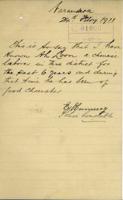 Narandera
20th Febry 1911
This is to say that I have
known Ah Loon a chinese
laborer in this district for
the past 6 years and during
that time he has been of
good character
Senior Constable